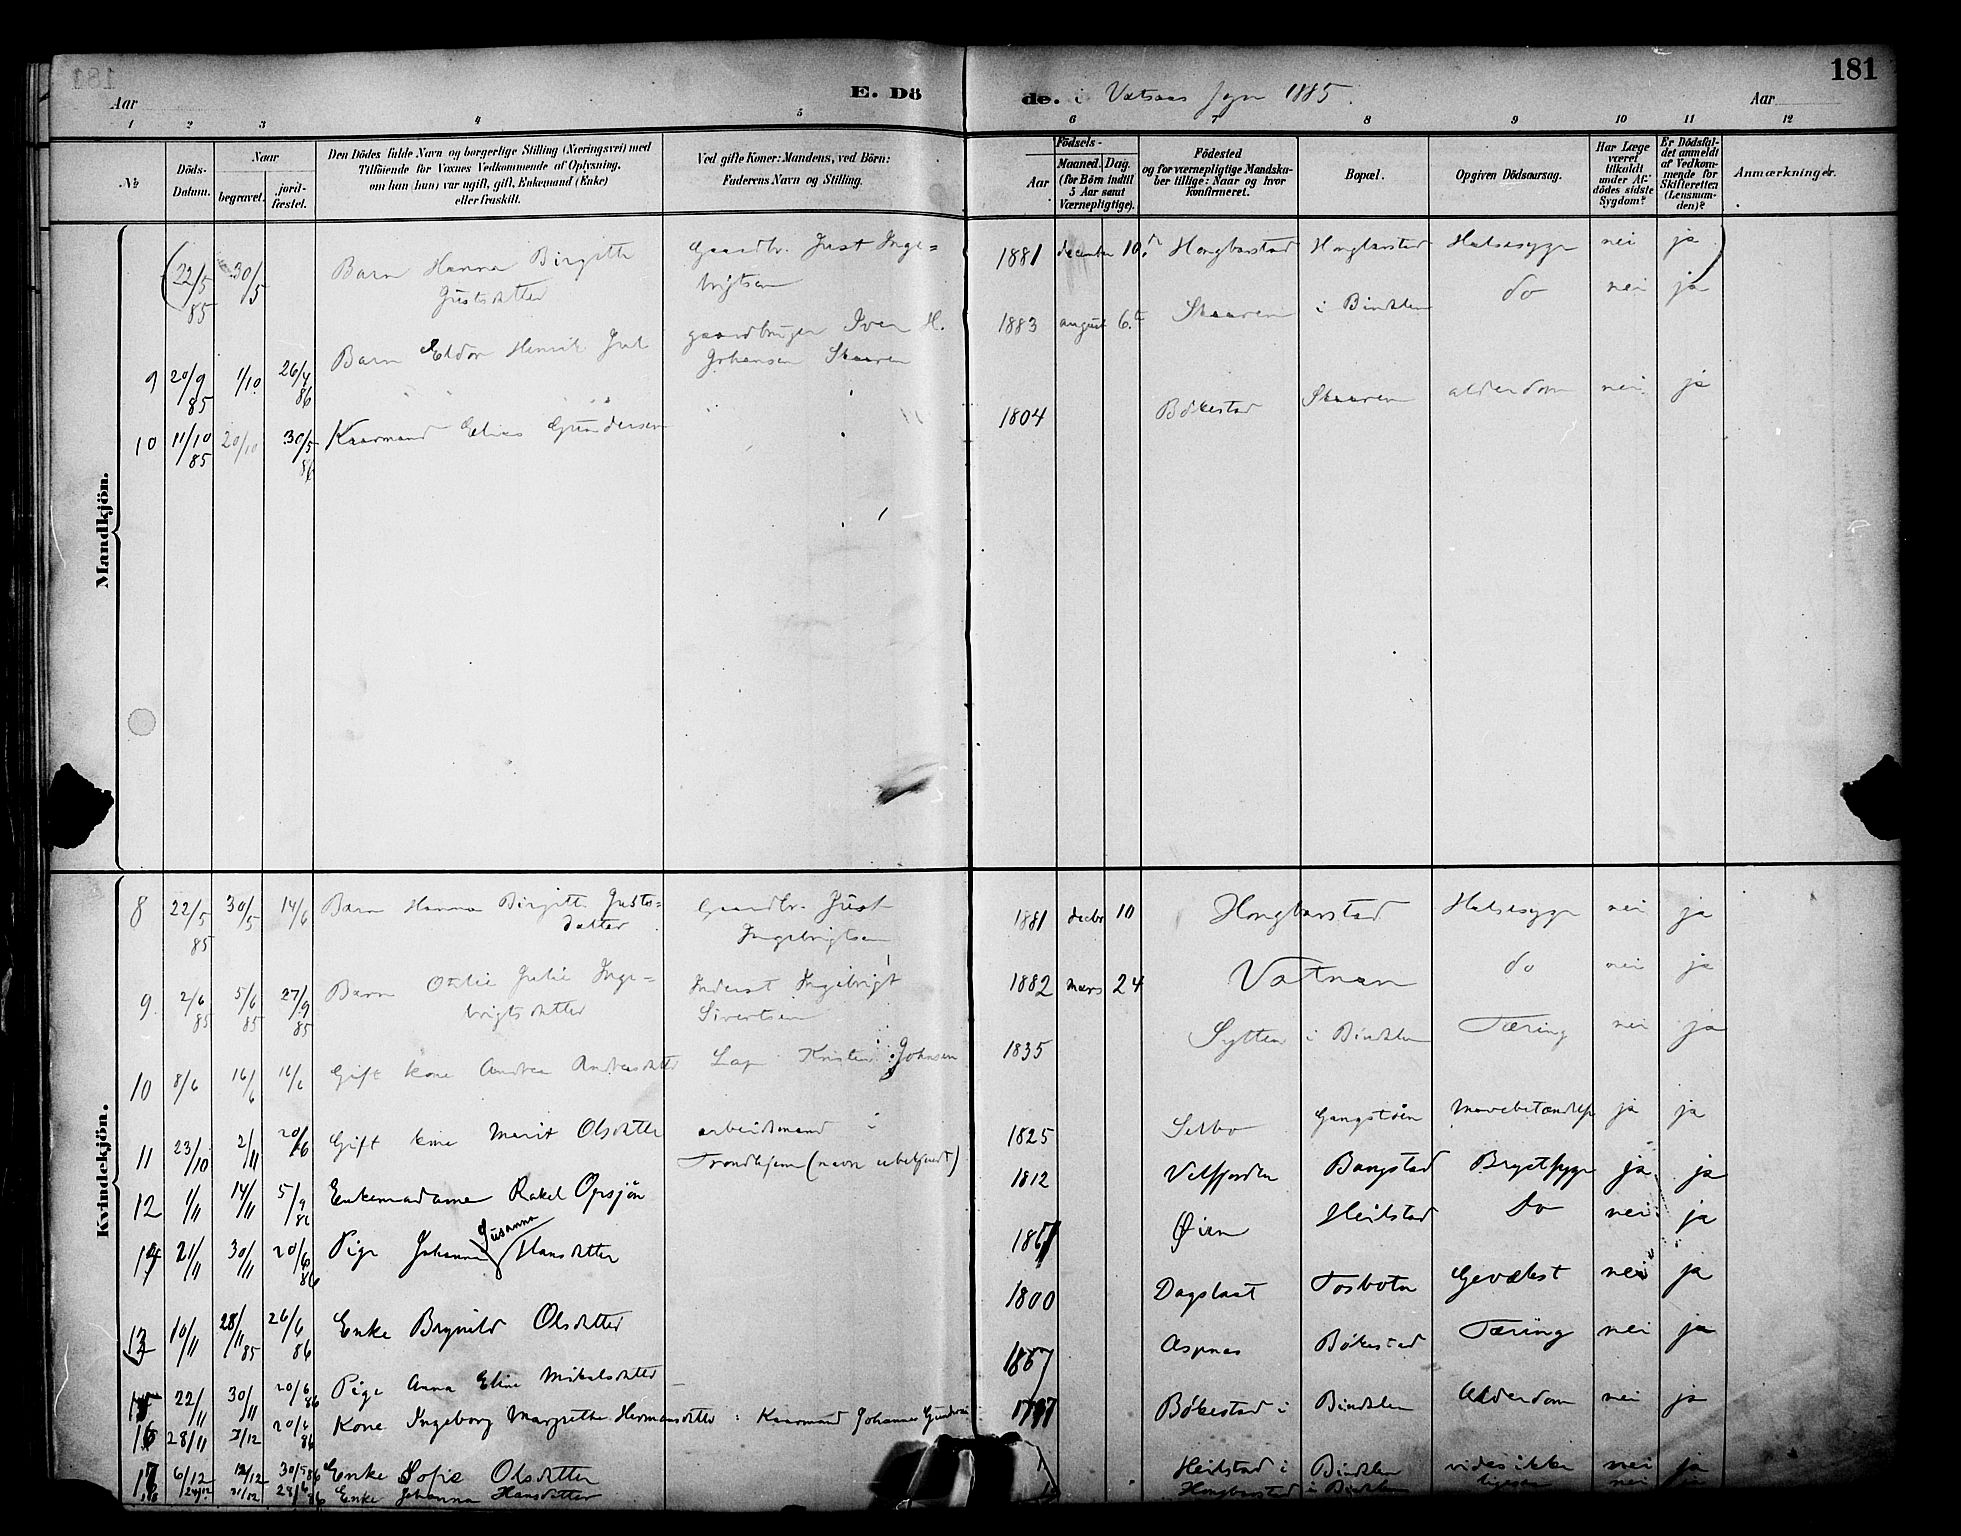 181
Aar
E. Dö
de. i Vatsaas Sogn 1885.
Aar
1 2 3 4 5 6 7 8 9 10 11 12
№
Döds-
Datum.
Naar
begravet.
jord-
fæstet.
Den Dödes fulde Navn og borgerlige Stilling (Næringsvei) med
Tilföiende for Voxnes Vedkommende af Oplysning,
om han (hun) var ugift, gift, Enkemand (Enke)
eller fraskilt.
Ved gifte Koner: Mandens, ved Börn:
Faderens Navn og Stilling.
Födsels-
Aar
Maaned. Dag.
(for Börn indtil
5 Aar samt
Værnepligtige).
Födested
og for værnepligtige Mandska-
ber tillige: Naar og hvor
konfirmeret.
Bopæl.
Opgiven Dödsaarsag.
Har Læge
været
tilkaldt
under Af-
dödes sidste
Sygdom?
Er Dödsfal-
det anmeldt
af Vedkom-
mende for
Skifteretten
(Lensman-
den)?
Anmærkninger.
Mandkjön.
22/5 85 30/5 Barn Hanna Birgitte Gaardbr. Just Inge= 1881 december 10. Hongbarstad Hongbarstad Halssyge nei ja
Justsdatter brigtsen
9 20/9 85 1/10 26/4 86 Barn Eldor Henrik Juel gaardbruger Iver H. 1883 august 6. Skaaren i Bindalen do nei ja
Johansen Skaaren
10 11/10 85 20/10 30/5 86 Kaarmand Elias Gundersen 1804 Bökestad Skaaren alderdom nei ja
Kvindekjön.
8 22/5 85 30/5 14/6 Barn Hanna Birgitte Justs= Gaardbr. Just 1881 decbr 10 Hongbarstad Halssyge nei ja
datter Ingebrigtsen
9 2/6 85 5/6 85 27/9 85 Barn Otelie Julie Inge= Inderst Ingebrigt 1882 mars 24 Vatnan do nei ja
brigtsdatter Sivertsen
10 8/6 16/6 16/6 Gift kone Andrea Andreasdatter Lap Kristen Johnsen 1835 Sytten i Bindalen Tæring nei ja
11 23/10 2/11 20/6 Gift kone Marit Olsdatter arbeidsmand i 1825 Selbo Gangstöen Mavebetændelse ja ja
Trondhjem (navn ubekjendt)
12 1/11 14/11 5/9 86 Enkemadame Rakel Opsjön 1812 Velfjorden Bangstad Brystsyge ja ja
14 21/11 30/11 20/6 86 Pige Johanna Susanna Hansdatter Øien Heilstad Do nei ja
13 10/11 28/11 85 26/6 86 Enke Brynild Olsdatter 1800 Dagslaat Tosbotn Gevækst nei ja
15 22/11 30/11 20/6 86 Pige Anna Eline Mikalsdatter 1867 Aspnes Bökestad Tæring nei ja
16 28/11 20/6 86 Kone Ingeborg Margrethe Hermansdatter Kaarmand Johannes Bökestad i Bindalen Alderdom nei ja
17 6/12 12/12 30/5 86 Enke Sofie Olsdatter Heilstad i Bindalen vides ikke nei ja
31/12 28/6 86 Enke Johanna Hansdatter Hongbarstad i Bindalen ligesaa nei